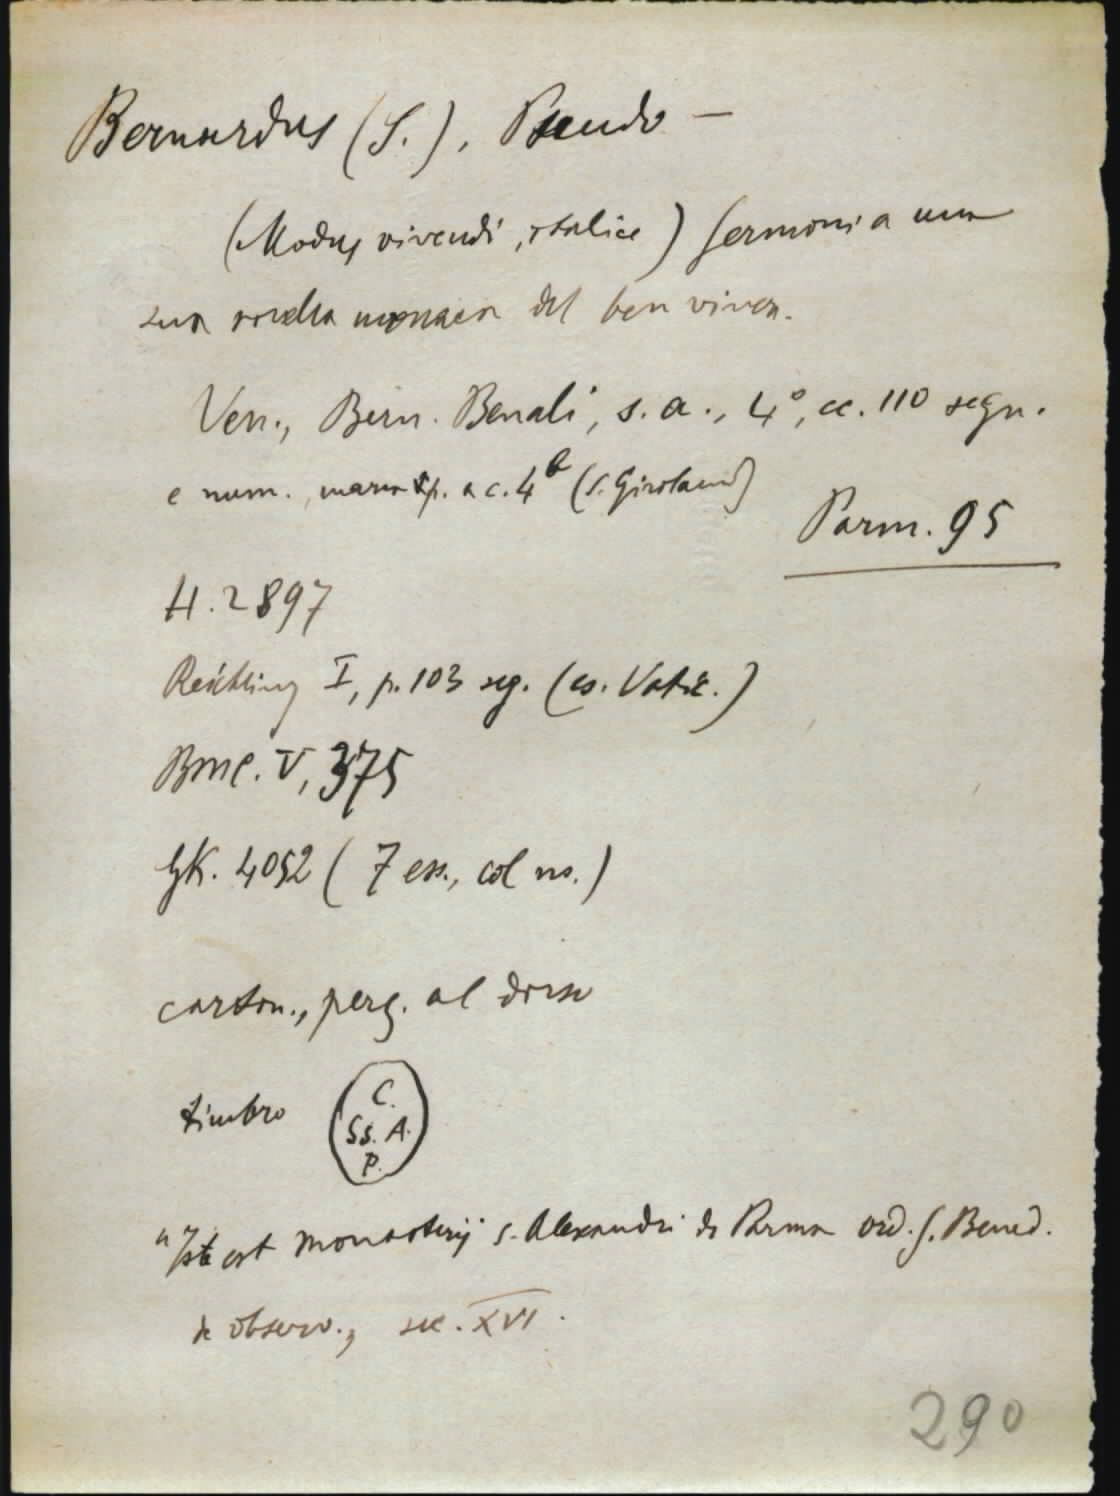 Bernardus (S.), Pseudo —
(Modus vivendi, italice) Sermoni a una
sua sorella monaca del ben viver.
Ven., Bern. Benali, s. a., 4°, cc. 110 segn.
e num., marca tip. a c. 4b (S. Girolamo)
Parm. 95
H. 2897
Reichling I, p. 103 seg. (es. Vatic.)
BMC. V, 375
GK. 4052 (7 ess., col ns.)
carton., perg. al dorso
timbro
C.
Ss. A.
P.
"Iste est monasterij s. Alexandri de Parma ord. S. Bened.
de observ., sec. XVI.
290